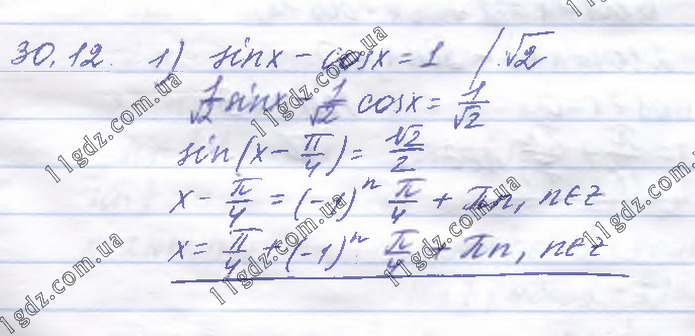 30.12. 1) sinx - cosx = 1 / √2
1/√2 sinx - 1/√2 cosx = 1/√2
sin(x - π/4) = √2/2
x - π/4 = (-1)ⁿ π/4 + πn, n∈Z
x = π/4 + (-1)ⁿ π/4 + πn, n∈Z
11gdz.com.ua
11gdz.com.ua
11gdz.com.ua
11gdz.com.ua
11gdz.com.ua
11gdz.com.ua
11gdz.com.ua